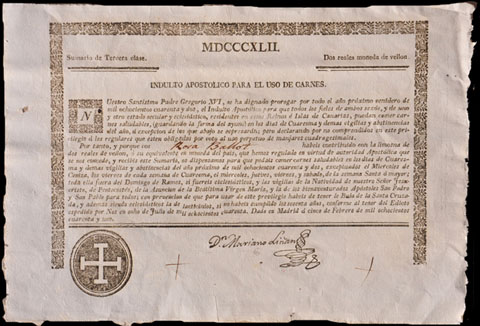 MDCCCXLII.
Sumario de Tercera clase.
Dos reales moneda de vellon.
INDULTO APOSTÓLICO PARA EL USO DE CARNES.
Nuestro Santísimo Padre Gregorio XVI, se ha dignado prorogar por todo el año próximo venidero de
mil ochocientos cuarenta y dos, el Indulto Apostólico para que todos los fieles de ambos sexos, y de uno
y otro estado secular y eclesiástico, residentes en estos Reinos é Islas de Canarias, puedan comer carnes
saludables, (guardando la forma del ayuno) en los dias de Cuaresma y demas vigilias y abstinencias
del año, á excepcion de los que abajo se expresarán, pero declarando no ser comprendidos en este privilegio
los regulares que esten obligados por voto al uso perpetuo de manjares cuadragesimales.
Por tanto, y porque vos Rosa Bellot habeis contribuido con la limosna de
dos reales de vellon, ó su equivalente en moneda del pais, que hemos regulado en virtud de autoridad Apostólica que
se nos concede, y recibís este Sumario, os dispensamos para que podais comer carnes saludables en los dias de Cuaresma
y demas vigilias y abstinencias del año próximo de mil ochocientos cuarenta y dos, exceptuados el Miercoles de
Ceniza, los viernes de cada semana de Cuaresma, el miercoles, jueves, viernes, y sabado, de la semana Santa ó mayor;
toda ella fuera del Domingo de Ramos, si fuereis eclesiásticos, y las vigilias de la Natividad de nuestro Señor Jesucristo,
de Pentecostés, de la Asuncion de la Beatísima Vírgen María, y la de los bienaventurados Apóstoles San Pedro
y San Pablo para todos; con prevencion de que para usar de este privilegio habeis de tener la Bula de la Santa Cruzada,
y ademas siendo eclesiásticos la de lacticinios, si no habeis cumplido los sesenta años, conforme al tenor del Edicto
expedido por Nos en ocho de Julio de mil ochocientos cuarenta. Dada en Madrid á cinco de Febrero de mil ochocientos
cuarenta y uno.
Dn. Mariano Liñan